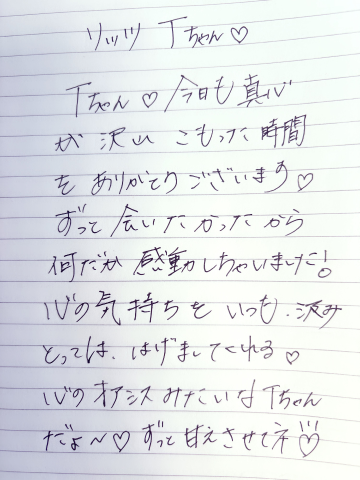 リッツ Tちゃん♡
Tちゃん♡今日も真心
が沢山こもった時間
をありがとうございます♡
ずっと会いたかったから
何だか感動しちゃいました!
心の気持ちをいつも、汲み
とっては、はげましてくれる♡
心のオアシスみたいなTちゃん
だょ〜♡ずっと甘えさせてネ♡